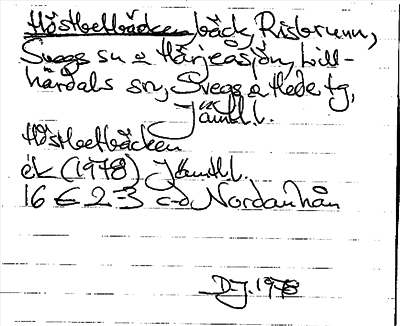 Höstbetbäcken bäck, Risbrunn,
Svegs sn o Härjeåsjön, Lill-
härdals sn, Svegs o Hede tg,
Jämtl. l.
Höstbetbäcken
ek (1978) Jämtl.
16 E 2-3 c-d Nordanhån
DJ. 1978